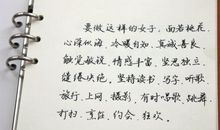 要做这样的女子，面若桃花、
心深似海、冷暖自知、真诚善良、
触觉敏锐、情感丰富、坚忍独立、
缱绻决绝。坚持读书、写字、听歌、
旅行、上网、摄影，有时唱歌、跳舞、
打扫、烹饪、约会、狂欢．